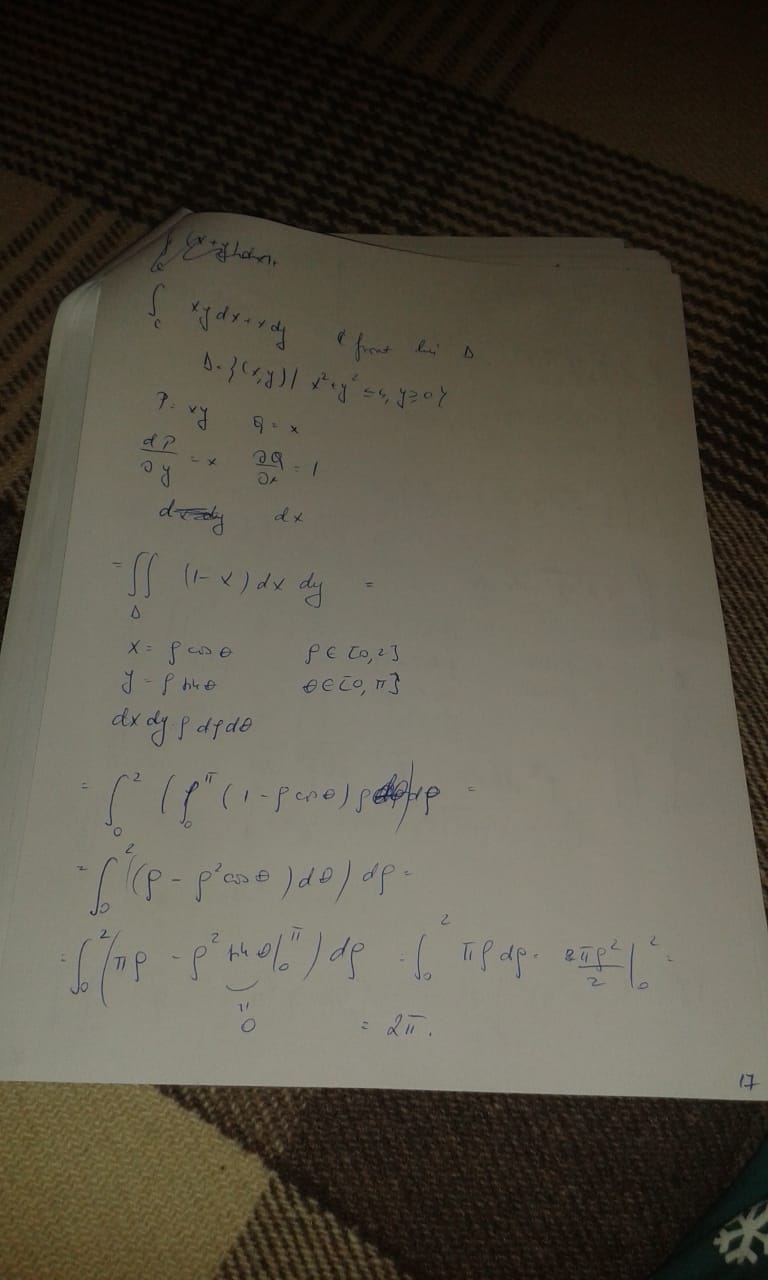 ∫_C xy dx + x dy C front lui Δ
Δ = {(x,y) | x² + y² ≤ 4, y ≥ 0}
P = xy Q = x
dP/∂y = x ∂Q/∂x = 1
dx
= ∬_Δ (1 - x) dx dy =
x = ρ cos θ ρ ∈ [0,2]
y = ρ sin θ θ ∈ [0, π]
dx dy = ρ dρ dθ
= ∫₀² (∫₀^π (1 - ρ cos θ) ρ dθ) dρ =
= ∫₀² ((ρ - ρ² cos θ) dθ) dρ =
= ∫₀² (πρ - ρ² sin θ |₀^π) dρ = ∫₀² πρ dρ = πρ²/2 |₀² =
= 0
= 2π.
17